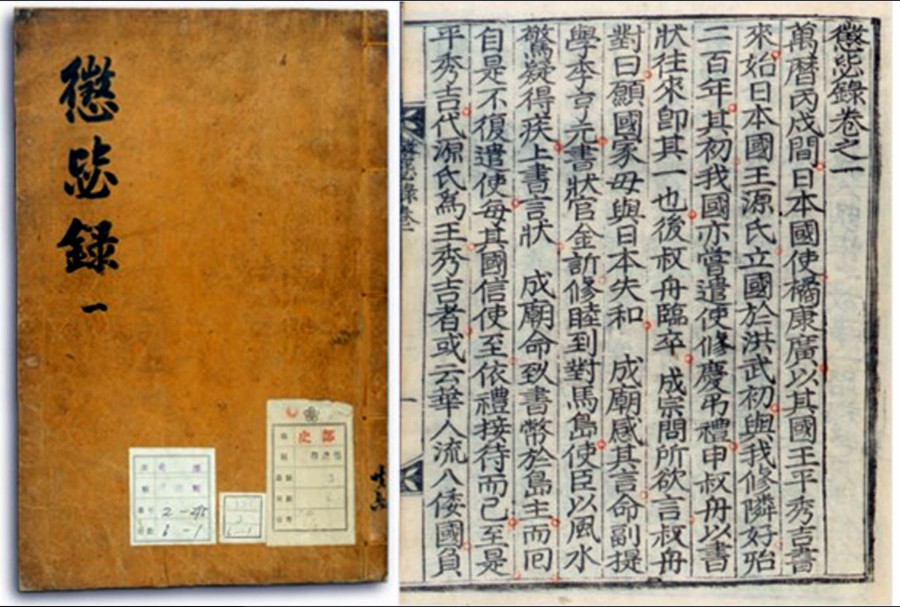 懲毖錄 一
史部
6-1
懲毖錄卷之一
萬曆丙戌間日本國使橘康廣以其國王平秀吉書
來始日本國王源氏立國於洪武初與我修隣好殆
二百年其初我國亦嘗遣使修慶弔禮申叔舟以書
狀往來卽其一也後叔舟臨卒 成宗問所欲言叔舟
對曰願國家毋與日本失和 成廟感其言命副提
學李亨元書狀官金訢修睦到對馬島使臣以風水
驚疑得疾上書言狀 成廟命致書幣於島主而囘
自是不復遣使每其國信使至依禮接待而已至是
平秀吉代源氏爲王秀吉者或云華人流入倭國負